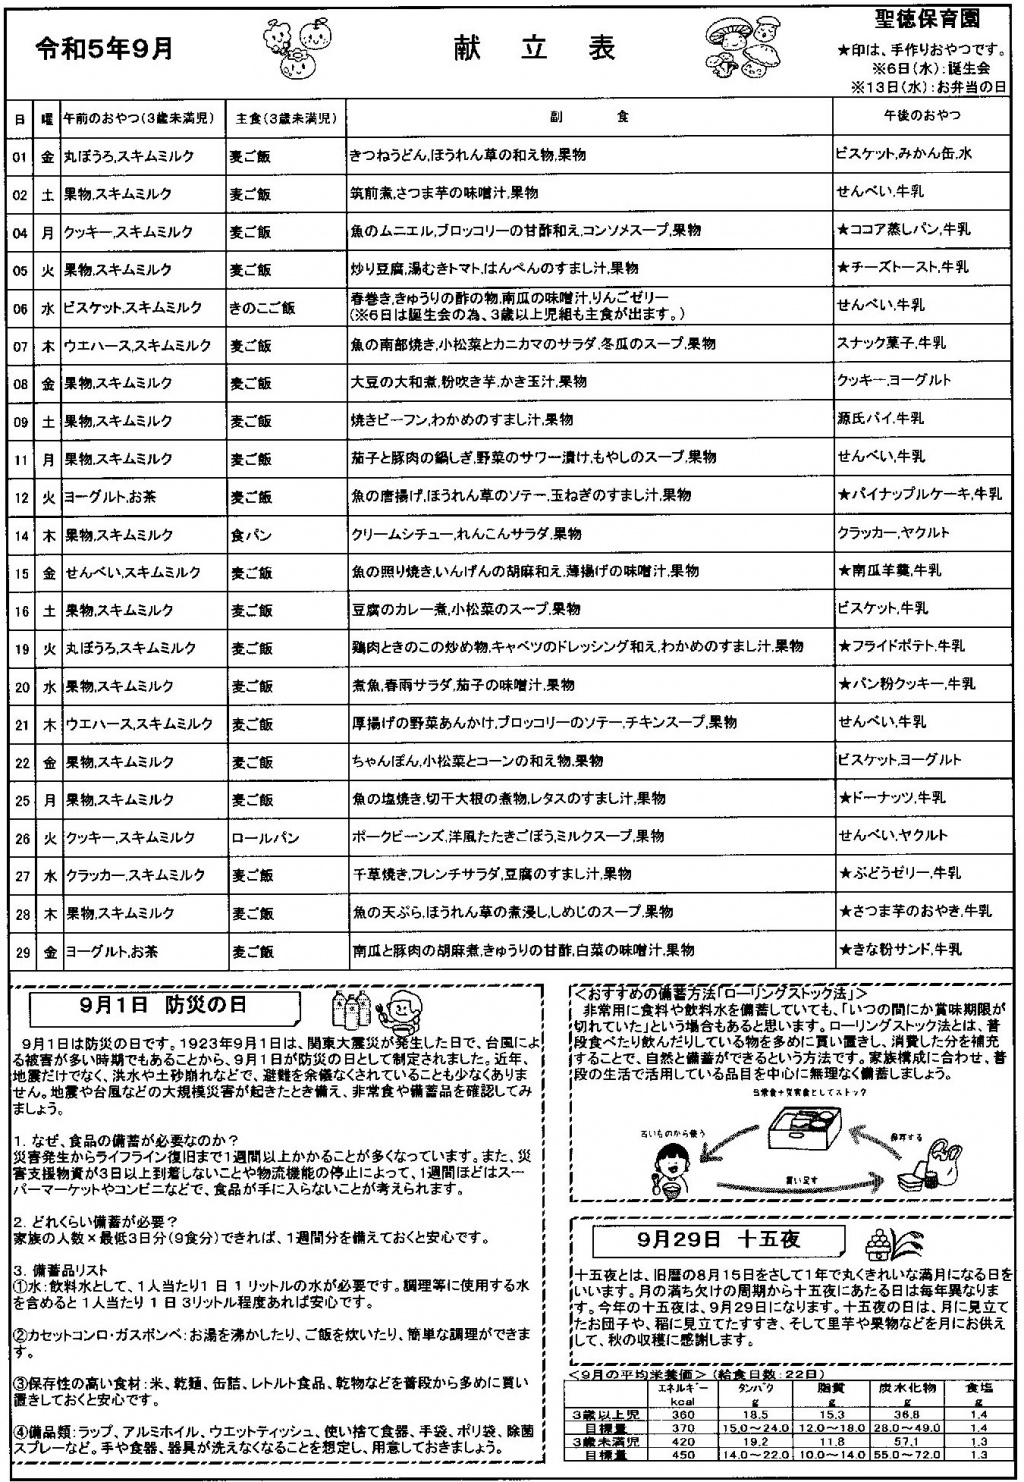 令和5年9月
献立表
聖徳保育園
★印は、手作りおやつです。
※6日(水):誕生会
※13日(水):お弁当の日
日 曜 午前のおやつ(3歳未満児) 主食(3歳未満児) 副食 午後のおやつ
01 金 丸ぼうろ,スキムミルク 麦ご飯 きつねうどん,ほうれん草の和え物,果物 ビスケット,みかん缶,水
02 土 果物,スキムミルク 麦ご飯 筑前煮,さつま芋の味噌汁,果物 せんべい,牛乳
04 月 クッキー,スキムミルク 麦ご飯 魚のムニエル,ブロッコリーの甘酢和え,コンソメスープ,果物 ★ココア蒸しパン,牛乳
05 火 果物,スキムミルク 麦ご飯 炒り豆腐,湯むきトマト,はんぺんのすまし汁,果物 ★チーズトースト,牛乳
06 水 ビスケット,スキムミルク きのこご飯 春巻き,きゅうりの酢の物,南瓜の味噌汁,りんごゼリー せんべい,牛乳
(※6日は誕生会の為、3歳以上児組も主食が出ます。)
07 木 ウエハース,スキムミルク 麦ご飯 魚の南部焼き,小松菜とカニカマのサラダ,冬瓜のスープ,果物 スナック菓子,牛乳
08 金 果物,スキムミルク 麦ご飯 大豆の大和煮,粉吹き芋,かき玉汁,果物 クッキー,ヨーグルト
09 土 果物,スキムミルク 麦ご飯 焼きビーフン,わかめのすまし汁,果物 源氏パイ,牛乳
11 月 果物,スキムミルク 麦ご飯 茄子と豚肉の鍋しぎ,野菜のサワー漬け,もやしのスープ,果物 せんべい,牛乳
12 火 ヨーグルト,お茶 麦ご飯 魚の唐揚げ,ほうれん草のソテー,玉ねぎのすまし汁,果物 ★パイナップルケーキ,牛乳
14 木 果物,スキムミルク 食パン クリームシチュー,れんこんサラダ,果物 クラッカー,ヤクルト
15 金 せんべい,スキムミルク 麦ご飯 魚の照り焼き,いんげんの胡麻和え,薄揚げの味噌汁,果物 ★南瓜羊羹,牛乳
16 土 果物,スキムミルク 麦ご飯 豆腐のカレー煮,小松菜のスープ,果物 ビスケット,牛乳
19 火 丸ぼうろ,スキムミルク 麦ご飯 鶏肉ときのこの炒め物,キャベツのドレッシング和え,わかめのすまし汁,果物 ★フライドポテト,牛乳
20 水 果物,スキムミルク 麦ご飯 煮魚,春雨サラダ,茄子の味噌汁,果物 ★パン粉クッキー,牛乳
21 木 ウエハース,スキムミルク 麦ご飯 厚揚げの野菜あんかけ,ブロッコリーのソテー,チキンスープ,果物 せんべい,牛乳
22 金 果物,スキムミルク 麦ご飯 ちゃんぽん,小松菜とコーンの和え物,果物 ビスケット,ヨーグルト
25 月 果物,スキムミルク 麦ご飯 魚の塩焼き,切干大根の煮物,レタスのすまし汁,果物 ★ドーナッツ,牛乳
26 火 クッキー,スキムミルク ロールパン ポークビーンズ,洋風たたきごぼう,ミルクスープ,果物 せんべい,ヤクルト
27 水 クラッカー,スキムミルク 麦ご飯 千草焼き,フレンチサラダ,豆腐のすまし汁,果物 ★ぶどうゼリー,牛乳
28 木 果物,スキムミルク 麦ご飯 魚の天ぷら,ほうれん草の煮浸し,しめじのスープ,果物 ★さつま芋のおやき,牛乳
29 金 ヨーグルト,お茶 麦ご飯 南瓜と豚肉の胡麻煮,きゅうりの甘酢,白菜の味噌汁,果物 ★きな粉サンド,牛乳
9月1日 防災の日
9月1日は防災の日です。1923年9月1日は、関東大震災が発生した日で、台風によ
る被害が多い時期でもあることから、9月1日が防災の日として制定されました。近年、
地震だけでなく、洪水や土砂崩れなどで、避難を余儀なくされていることも少なくありま
せん。地震や台風などの大規模災害が起きたとき備え、非常食や備蓄品を確認してみ
ましょう。
1. なぜ、食品の備蓄が必要なのか?
災害発生からライフライン復旧まで1週間以上かかることが多くなっています。また、災
害支援物資が3日以上到着しないことや物流機能の停止によって、1週間ほどはスー
パーマーケットやコンビニなどで、食品が手に入らないことが考えられます。
2. どれくらい備蓄が必要?
家族の人数×最低3日分(9食分)できれば、1週間分を備えておくと安心です。
3. 備蓄品リスト
①水:飲料水として、1人当たり1日1リットルの水が必要です。調理等に使用する水
を含めると1人当たり1日3リットル程度あれば安心です。
②カセットコンロ・ガスボンベ:お湯を沸かしたり、ご飯を炊いたり、簡単な調理ができま
す。
③保存性の高い食材:米、乾麺、缶詰、レトルト食品、乾物などを普段から多めに買い
置きしておくと安心です。
④備品類:ラップ、アルミホイル、ウエットティッシュ、使い捨て食器、手袋、ポリ袋、除菌
スプレーなど。手や食器、器具が洗えなくなることを想定し、用意しておきましょう。
<おすすめの備蓄方法「ローリングストック法」>
非常用に食料や飲料水を備蓄していても、「いつの間にか賞味期限が
切れていた」という場合もあると思います。ローリングストック法とは、普
段食べたり飲んだりしている物を多めに買い置きし、消費した分を補充
することで、自然と備蓄ができるという方法です。家族構成に合わせ、普
段の生活で活用している品目を中心に無理なく備蓄しましょう。
日常食+災害食としてストック
古いものから使う
保存する
買い足す
9月29日 十五夜
十五夜とは、旧暦の8月15日をさして1年で丸くきれいな満月になる日を
いいます。月の満ち欠けの周期から十五夜にあたる日は毎年異なりま
す。今年の十五夜は、9月29日になります。十五夜の日は、月に見立て
たお団子や、稲に見立てたすすき、そして里芋や果物などを月にお供え
して、秋の収穫に感謝します。
<9月の平均栄養価> (給食日数:22日)
エネルギー タンパク 脂質 炭水化物 食塩
kcal g g g g
3歳以上児 360 18.5 15.3 36.8 1.4
目標量 370 15.0~24.0 12.0~18.0 28.0~49.0 1.4
3歳未満児 420 19.2 11.8 57.1 1.3
目標量 450 14.0~22.0 10.0~14.0 55.0~72.0 1.3